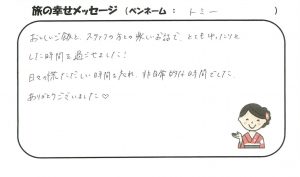 旅の幸せメッセージ（ペンネーム： トミー ）
おいしいご飯と、スタッフの方との楽しいお話で、とてもゆったりと
した時間を過ごせました！
日々の慌ただしい時間を忘れ、非日常的な時間でした。
ありがとうございました♡